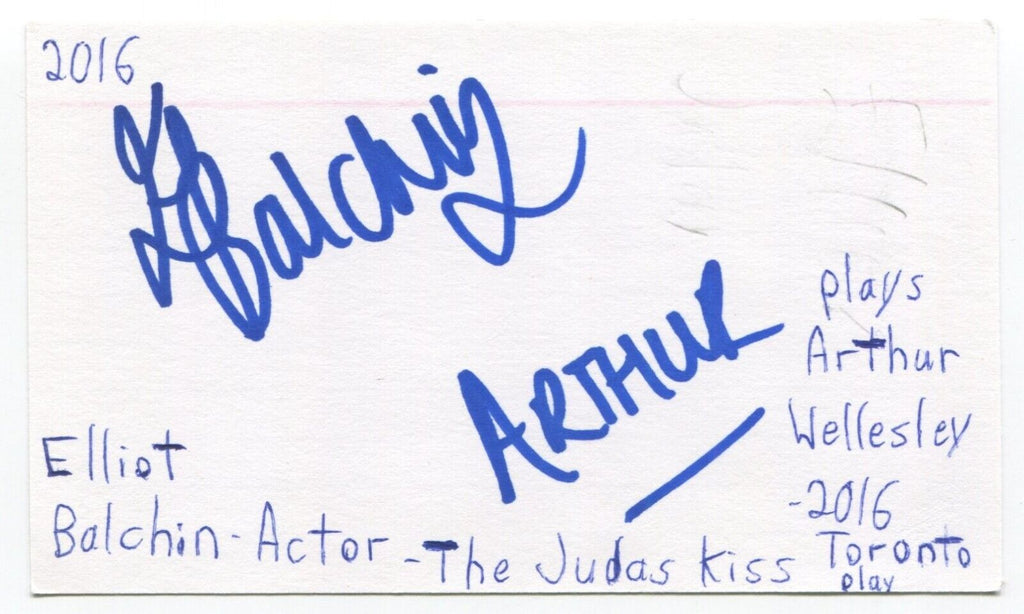 2016
EBalchin
ARTHUR
plays
Arthur
Wellesley
-2016
Toronto
play
Elliot
Balchin - Actor - The Judas Kiss